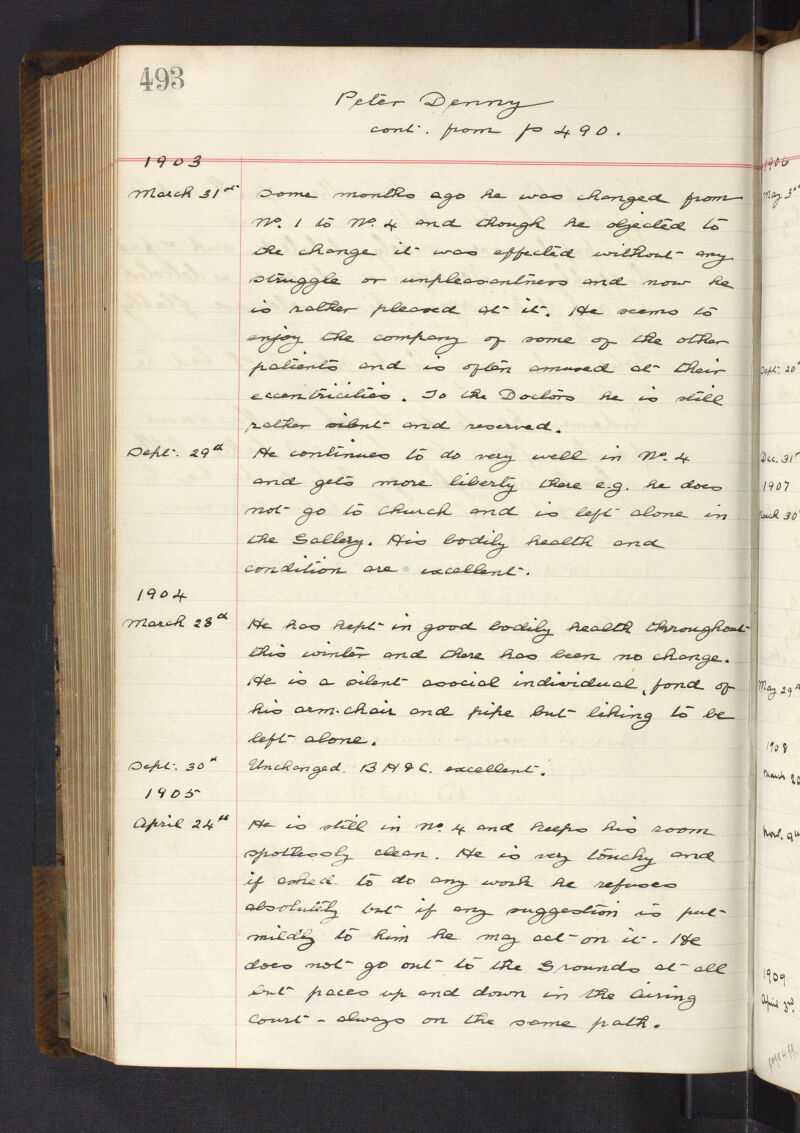 493
Peter Denny
cont. from p 490.
1903
March 31st Some months ago he was changed from
No. 1 to No. 4 and though he objected to
the change it was effected without any
struggle or unpleasantness and now he
is rather pleased at it. He seems to
enjoy the company of some of the other
patients and is often amused at their
eccentricities. To the Doctors he is still
rather silent and reserved.
Sept. 29th He continues to do very well in No. 4
and gets more liberty there e.g. he does
not go to church and is left alone in
the Gallery. His bodily health and
condition are excellent.
1904
March 28th He has kept in good bodily health throughout
this winter and there has been no change.
He is a silent asocial individual, fond of
his arm-chair and pipe but liking to be
left alone.
Sept. 30th Unchanged. B H & C. excellent.
1905
April 24th He is still in No. 4 and keeps his room
spotlessly clean. He is very touchy and
if asked to do any work he refuses
absolutely but if any suggestion is put
mildly to him he may act on it. He
does not go out to the Grounds at all
but paces up and down in the Airing
Court - always on the same path.
1906
May 3rd
Sept. 20
Dec. 31
1907
March 30
May 29th
1908
March 20
Nov. 9th
1909
April 3rd